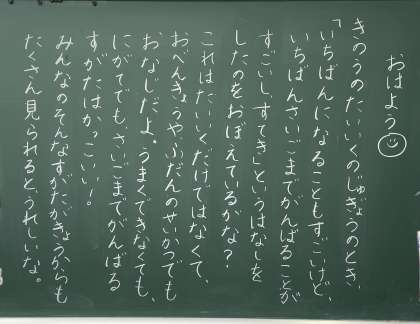 おはよう
きのうのたいいくのじぎょうのとき、
「いちばんになることもすごいけど、
いちばんさいごまでがんばることが
すごいし、すてき」というはなしを
したのをおぼえているかな？
これはたいいくだけではなくて、
おべんきょうや、ふだんのせいかつでも
おなじだよ。うまくできなくても、
にがてでも、さいごまでがんばる
すがたはかっこいい！
みんなのそんなすがたがきょうからも
たくさん見られると、うれしいな。